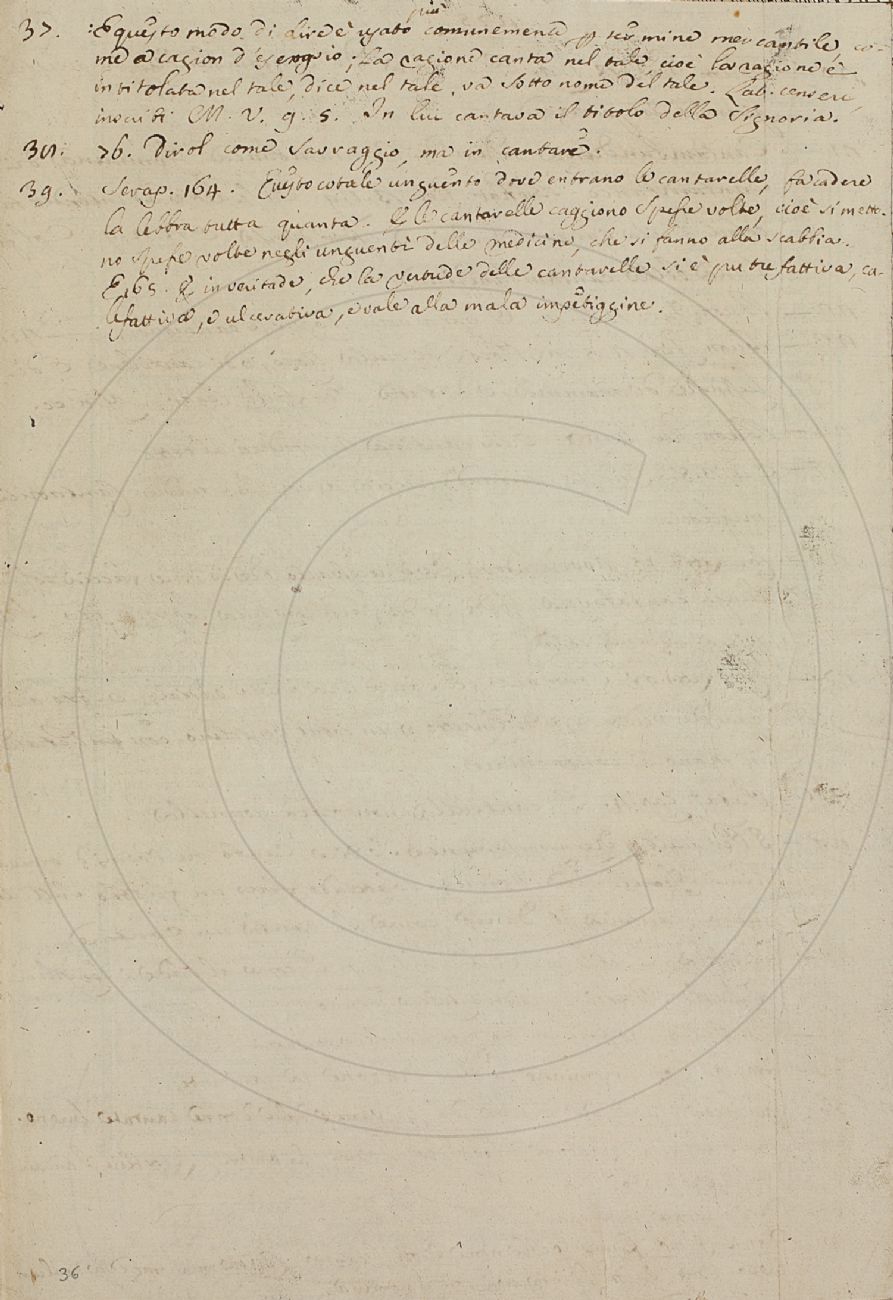 più
37. : E questo modo di dire è usato comunemente p termine mercantile, co-
me a cagion d'esempio; La ragione canta nel tale, cioè la ragione è
intitolata nel tale, dice nel tale, va sotto nome del tale. Lat. censeri,
inscribi. M. V. 9. 5. In lui cantava il titolo della Signoria.
38. 76. Dirol come Savraggio, ma in cantare.
39. Serap. 164. Questo cotale unguento dove entrano le cantarelle, fa cadere
la lebbra tutta quanta. E le cantarelle caggiono spesse volte, cioè si metto-
no spesse volte negli unguenti delle medicine, che si fanno alla scabbia.
E 165. E in veritade, che la vertude delle cantarelle si è putrefattiva, ca-
lefattiva, e ulcerativa, e vale alla mala impetiggine.
36